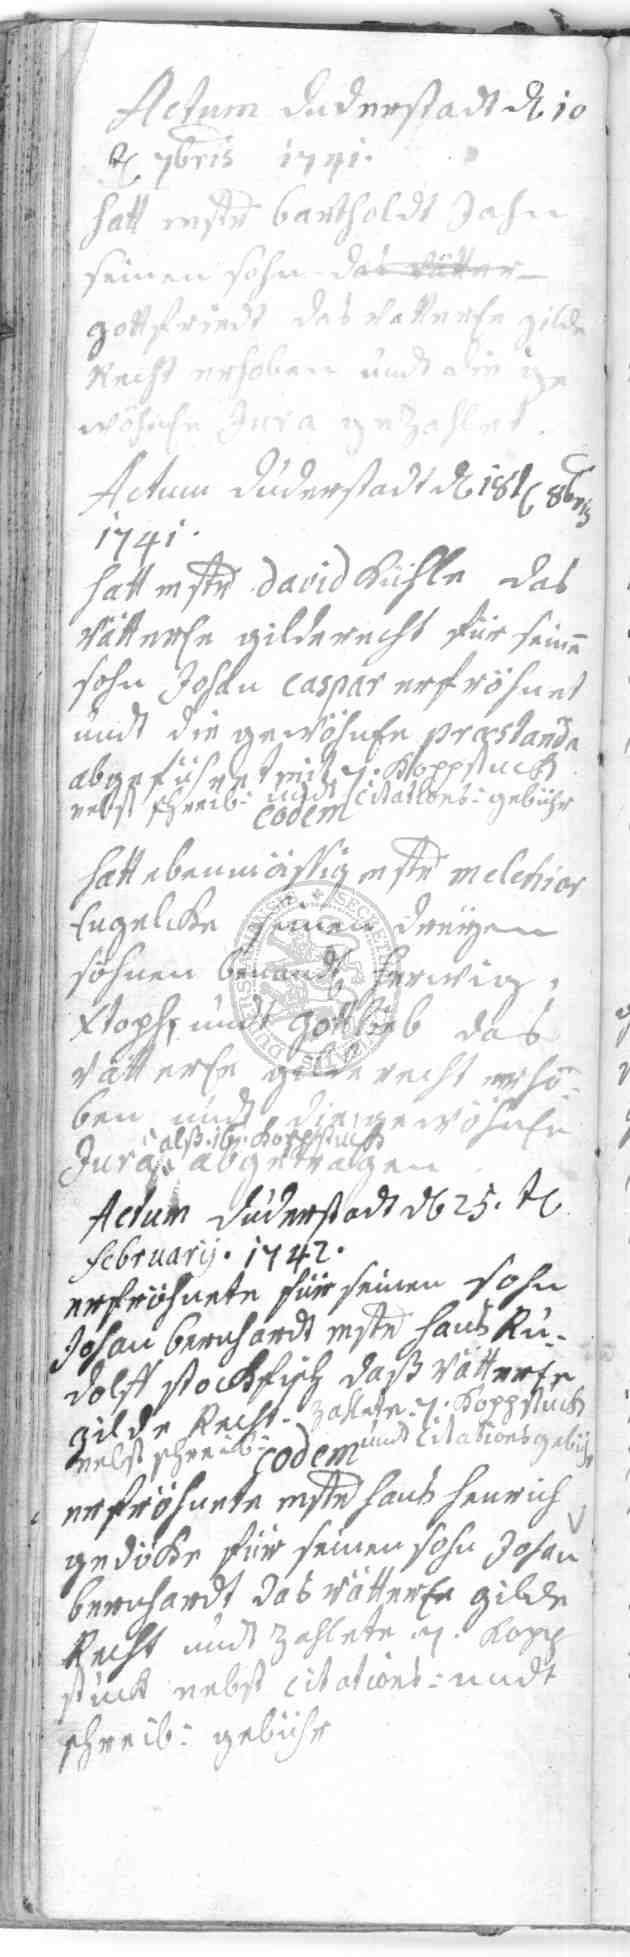 Actum duderstadt d 10
t 7bris 1741.
hatt mstr bartholdt Jahn
seinen sohn das vätter
gottfriedt das vatterle gilde
Recht erhoben undt die ge
wöhnle Jura gezahlet.
Actum duderstadt d 18t 8bris
1741.
hatt mstr david Kühle das
vätterle gilderecht für seinē
sohn Johan caspar erfröhnet
undt die gewöhnle præstanda
abgeführet mit 7. Koppstuck
nebst schreib: undt citations: gebühr
eodem
hatt ebenmässig mstr melchior
Engelcke seinen dreyen
söhnen benandt Herwig,
Xtoph, undt gottlieb das
vätterle gilderecht erhö-
ben undt die gewöhnle
alß Koppstuck
Jura abgetragen
Actum duderstadt d 25. t
februarij. 1742.
erfröhnete für seinen sohn
Johan bernhardt mstr hans Ru-
dolff stockfisch daß vätterle
gilde Recht. zahlete 7. Koppstuck
nebst schreib: undt citationsgebühr
eodem
erfröhnete mstr hans henrich
gedöke für seinen sohn Johan
bernhardt das vätterle gilde
Recht undt zahlete 7. Kopp
stück nebst citations: undt
schreib: gebühr